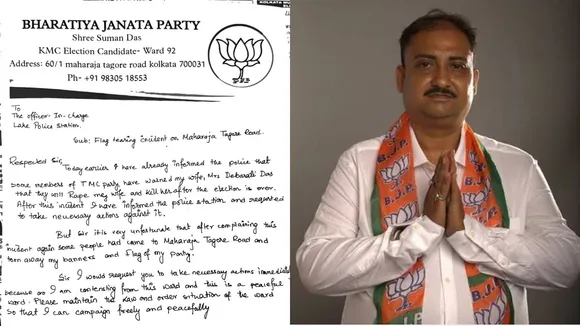 KOLKATA MUN
BHARATIYA JANATA PARTY
Shree Suman Das
KMC Election Candidate- Ward 92
Address: 60/1 maharaja tagore road kolkata 700031
Ph- +91 98305 18553
To
The officer-In-charge
Lake Police Station.
Sub: Flag tearing incident on Maharaja Tagore Road.
Respected Sir,
Today earlier I have already informed the police that
some members of TMC party have warned my wife, Mrs Debarati Das
that they will Rape my wife and kill her after the election is over.
After this incident I have informed the police station and requested
to take necessary actions against it.
But Sir it is very unfortunate that after complaining this
incident again some people had came to Maharaja Tagore Road and
torn away my banners and Flag of my party.
Sir I would request you to take necessary actions
because as I am contesting from this ward and this is a peaceful
ward. Please maintain the Law and order situation of the ward
So that I can campaign freely and peacefully
B.J.P.
B.J.P.